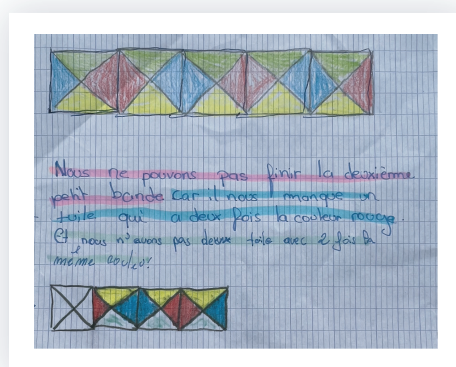 Nous ne pouvons pas finir la deuxième
petit bande car il nous manque un
tuile qui a deux fois la couleur rouge.
Et nous n'avons pas deux tuile avec 2 fois la
même couleur!